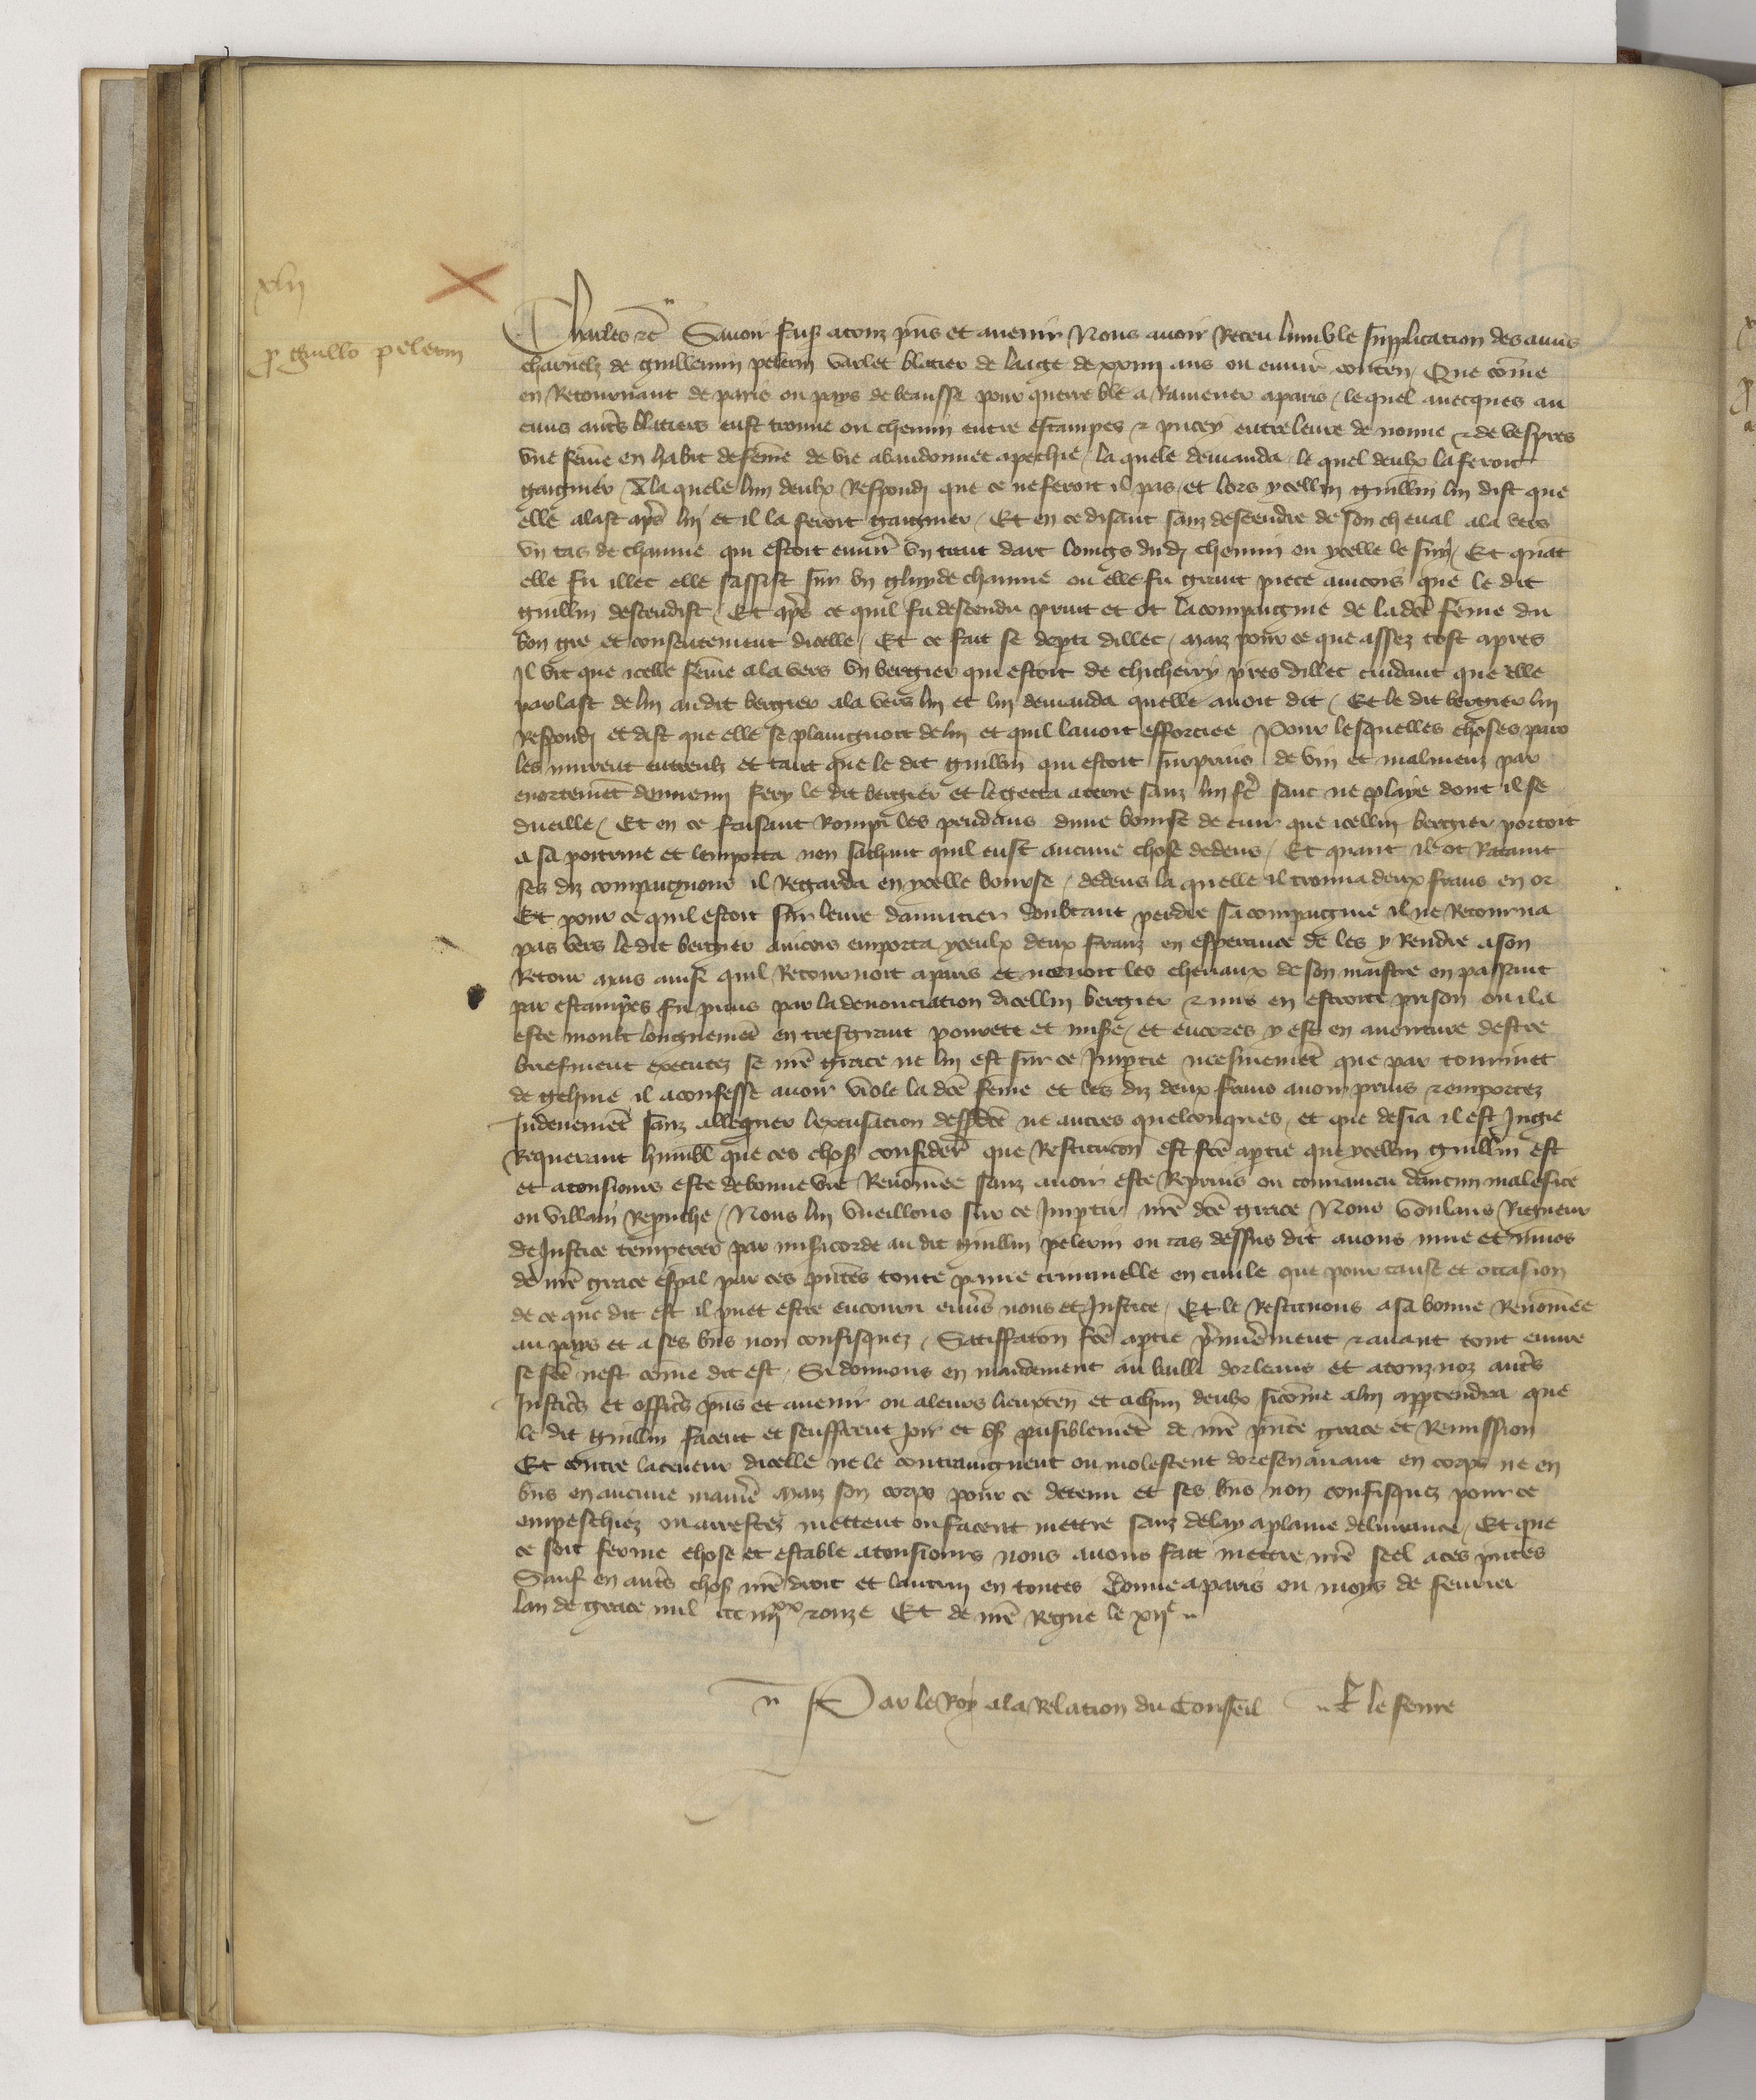 xlij
p guillo pelerin
Charles etc Savoir fais a touz pns et avenir Nous avoir Receu lumble supplication des amis
charnelz de guillemin pelerin varlet blatier de laage de xxiiij ans ou envir conten Que come
en Retournant de paris ou pays de beausse pour querre ble a Ramener a paris lequel avecques au
cuns autrs blatiers eust trouve ou chemin entre estampes et leure de nonne et de vespres
une feme en habit de feme de vie abandonnee a pechie la quele demanda le quel deulx la feroit
gaigner A la quele lun deulx Respondi que ce ne feroit il pas et lors ycellui guillin lui dist que
elle alast aprs lui et il la feroit gaigner Et en ce disant sanz descendre de son cheval ala vers
un tas de chaume qui estoit envir un trait darc loings dudi chemin ou ycelle le suy Et quat
elle fu illec elle sassist sur un gluy de chaume ou elle fu grant piece aincois que le dit
guillin descendist Et aprs ce quil fu descendu print et ot la compaignie de la dce feme du
bon gre et consentement dicelle Et ce fait se depti dillec maiz pour ce que assez tost apres
Il vit que icelle feme ala vers un bergier qui estoit de chicheny pres dillec cuidant que elle
parlast de lui au dit bergier ala vers lui et lui demanda quelle avoit dit Et le dit bergier lui
Respondi et dist que elle se plaingnoit de lui et quil lavoit efforciee Pour lesquelles choses paro
les murent entreulx et tant que le dit guillin qui estoit surprins de vin et malmenz par
enortemet dennemi fery le dit bergier et le getta a terre sanz lui fe sanc ne playe dont il se
dueille Et en ce faisant Rompi les pendans dune bourse de cuir que icellui bergier portoit
a sa poitrine et lemporta non sachant quil eust aucune chose dedens Et quant il ot Rataint
ses diz compaignons il Regarda en ycelle bourse dedens la quelle il trouva deux frans en or
Et pour ce quil estoit sur leure danuitier doubtant perdre sa compaignie il ne Retourna
pas vers le dit bergier aincois emporta yceulx deux franz en esperance de les y Rendre a son
Retour mais ainsi quil Retournoit a paris et menoit les chevaux de son maistre en passant
par estampes fu prins par la denonciation dicellui bergier et mis en estroite prison ou il a
este moult longuemet en tresgrant povrete et mise et encores y est en aventure destre
briefment executez se nre grace ne lui est sur ce Imptie mesmemet que par tourmet
de gehine il a confesse avoir viole la dce feme et les diz deux frans avoir prins et emportez
Induement sanz alleguer lexcusacion dessdte ne autres quelconques et que desia il est Jugie
Requerant humbl que ces chos consider que Restitucon est fce a ptie que ycellui guillin est
et a tousiours este de bonne vie Renomee sanz avoir este Reprins ou convaincu daucun malefice
ou villain Reprouche Nous lui vueillons sur ce Imptir nre dce grace Nous voulans Rigueur
de Justice temperer par misicorde au dit guillin pelerin ou cas dessus dit avons mue et muons
de nre grace espal par ces pntes toute paine criminelle en civile que pour cause et occasion
de ce que dit est il puet estre encouru envrs nous et Justice Et le Restituons a sa bonne Renomee
au pays et a ses bns non confisquez Satiffaton fce a ptie prmierment et avant tout euvre
se fce nest come dit est Si donnons en mandement au bailli dorleans et a touz noz autrs
Justicrs et officrs pns et avenir ou a leurs lieuxten et a chun deulx sicome a lui apptendra que
le dit guillin facent et seuffrent joir et us paisiblemet de nre pnte grace et Remission
Et contre la teneur dicelle ne le contraingnent ou molestent doresenavant en corps ne en
bns en aucune maniere maiz son corps pour ce detenu et ses bns non confisquez pour ce
empeschiez ou arrestez mettent ou facent mettre sanz delay a plaine delivrance Et que
ce soit ferme chose et estable a tousiours nous avons fait mettre nre seel a ces pntes
Sauf en autrs chos nre droit et lautrui en toutes Donne a paris ou moys de fevrier
lan de grace mil ccc iiijxx et onze Et de nre Regne le xije
Par le Roy a la Relation du Conseil le fevre